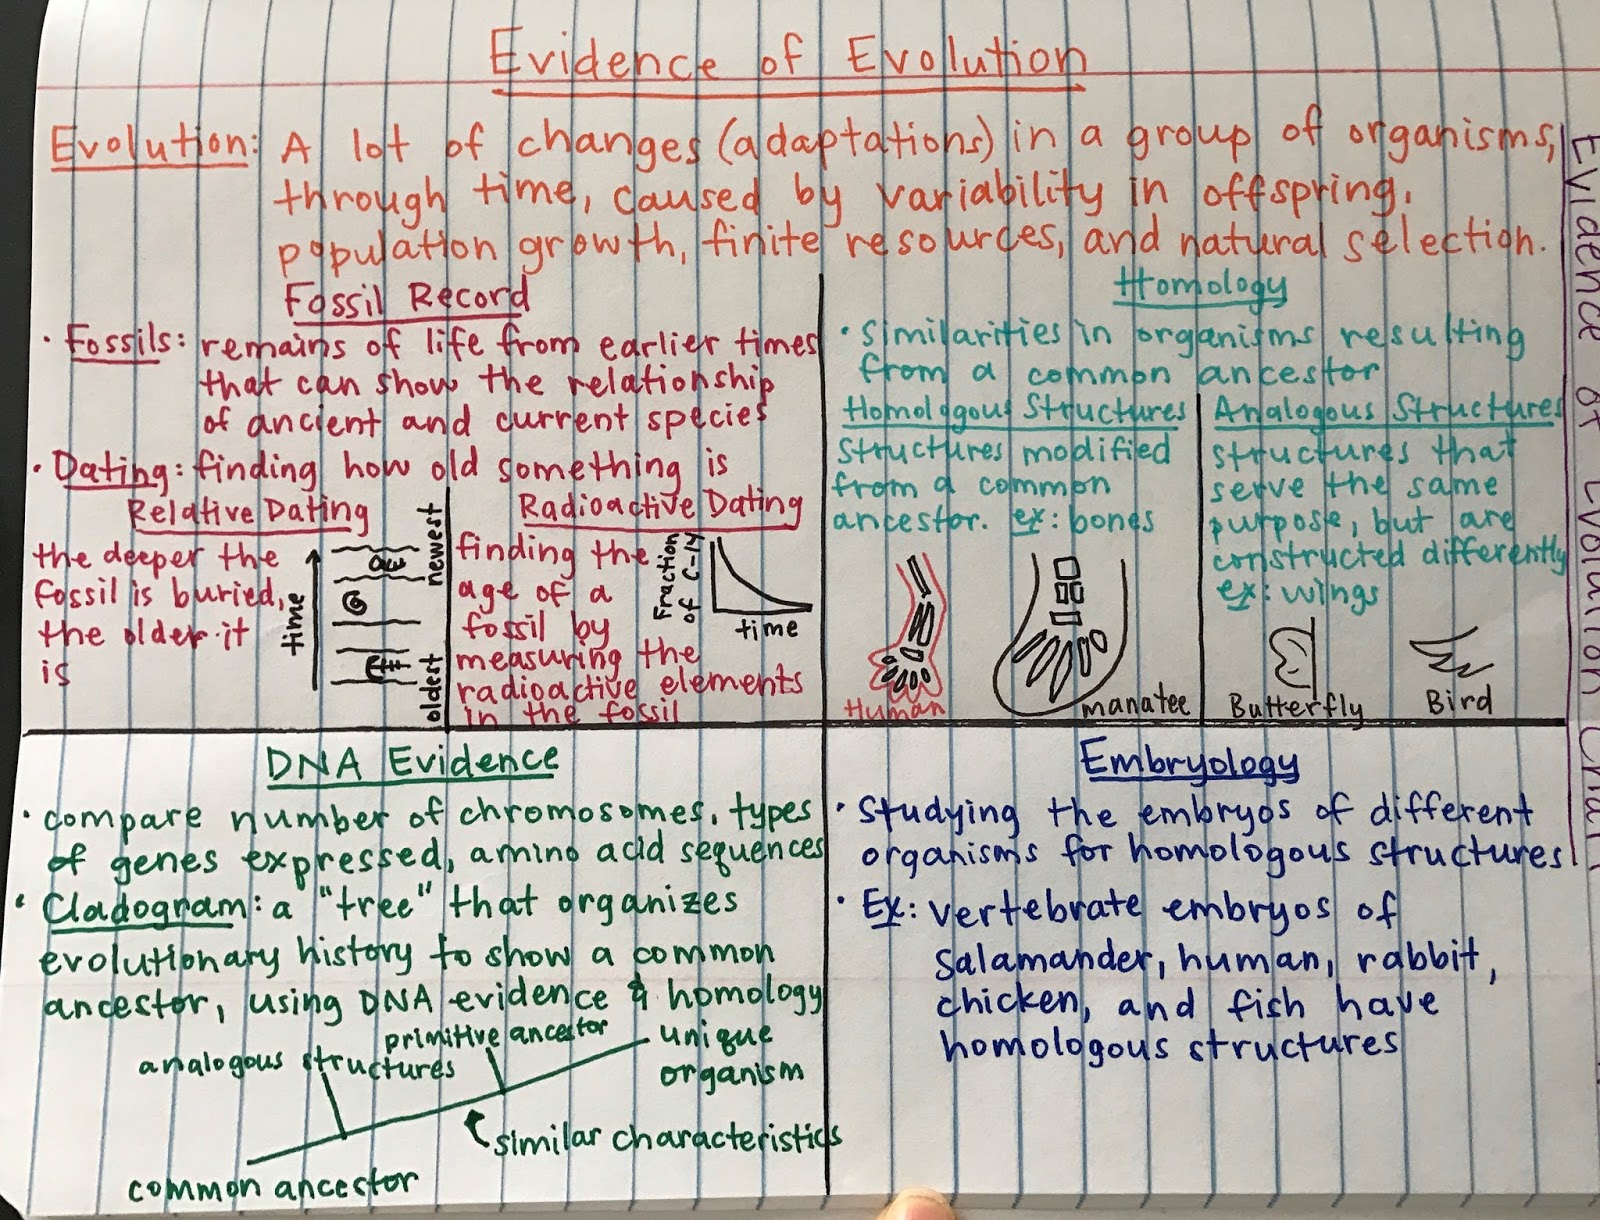 Evidence of Evolution
Evolution: A lot of changes (adaptations) in a group of organisms,
through time, caused by variability in offspring,
population growth, finite resources, and natural selection.
Fossil Record
· Fossils: remains of life from earlier times
that can show the relationship
of ancient and current species
· Dating: finding how old something is
Relative Dating
the deeper the
fossil is buried,
the older it
is
time
newest
oldest
Radioactive Dating
finding the
age of a
fossil by
measuring the
radioactive elements
in the fossil
Fraction
of C-14
time
Homology
· Similarities in organisms resulting
from a common ancestor
Homologous Structures
structures modified
from a common
ancestor. ex: bones
Human
manatee
Analogous Structures
structures that
serve the same
purpose, but are
constructed differently
ex: wings
Butterfly
Bird
DNA Evidence
· compare number of chromosomes, types
of genes expressed, amino acid sequences
· Cladogram: a "tree" that organizes
evolutionary history to show a common
ancestor, using DNA evidence & homology
primitive ancestor
analogous structures
unique
organism
similar characteristics
common ancestor
Embryology
· Studying the embryos of different
organisms for homologous structures
· Ex: vertebrate embryos of
salamander, human, rabbit,
chicken, and fish have
homologous structures
Evidence of Evolution Chart